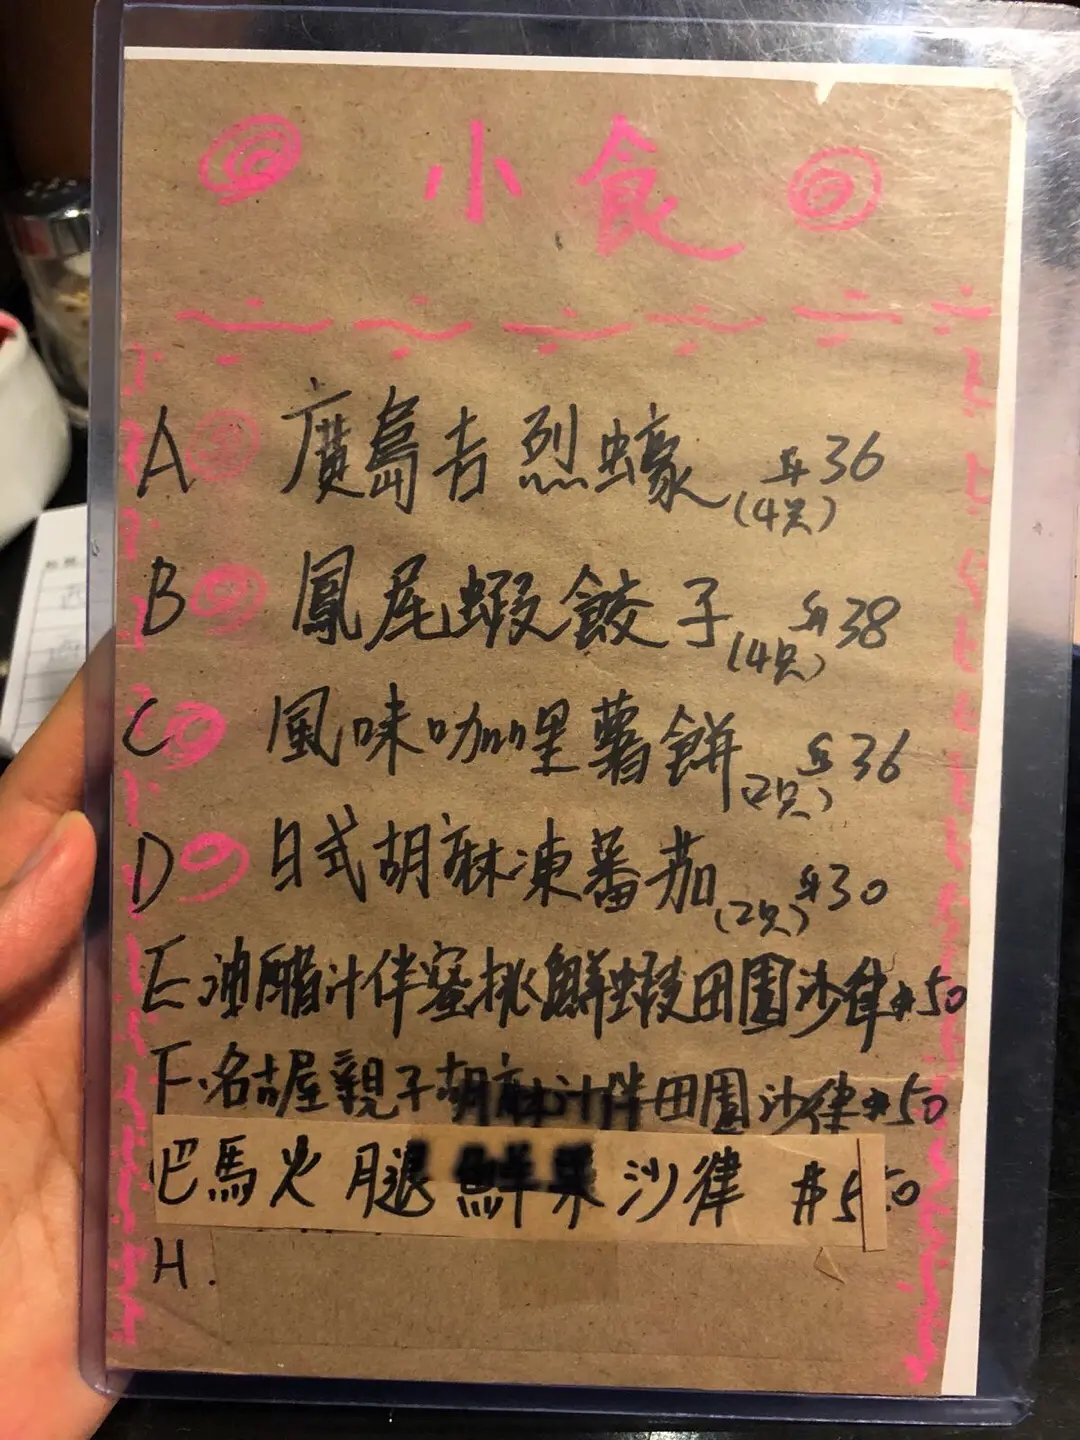 小食
A 廣島吉烈蠔 $36
(4只)
B 鳳尾蝦餃子 $38
(4只)
C 風味咖喱薯餅 $36
(2只)
D 日式胡麻凍蕃茄 $30
(2只)
E 油醋汁伴蜜桃鮮蝦田園沙律 $50
F. 名古屋親子胡麻汁伴田園沙律 $50
巴馬火腿鮮果沙律 $50
H.